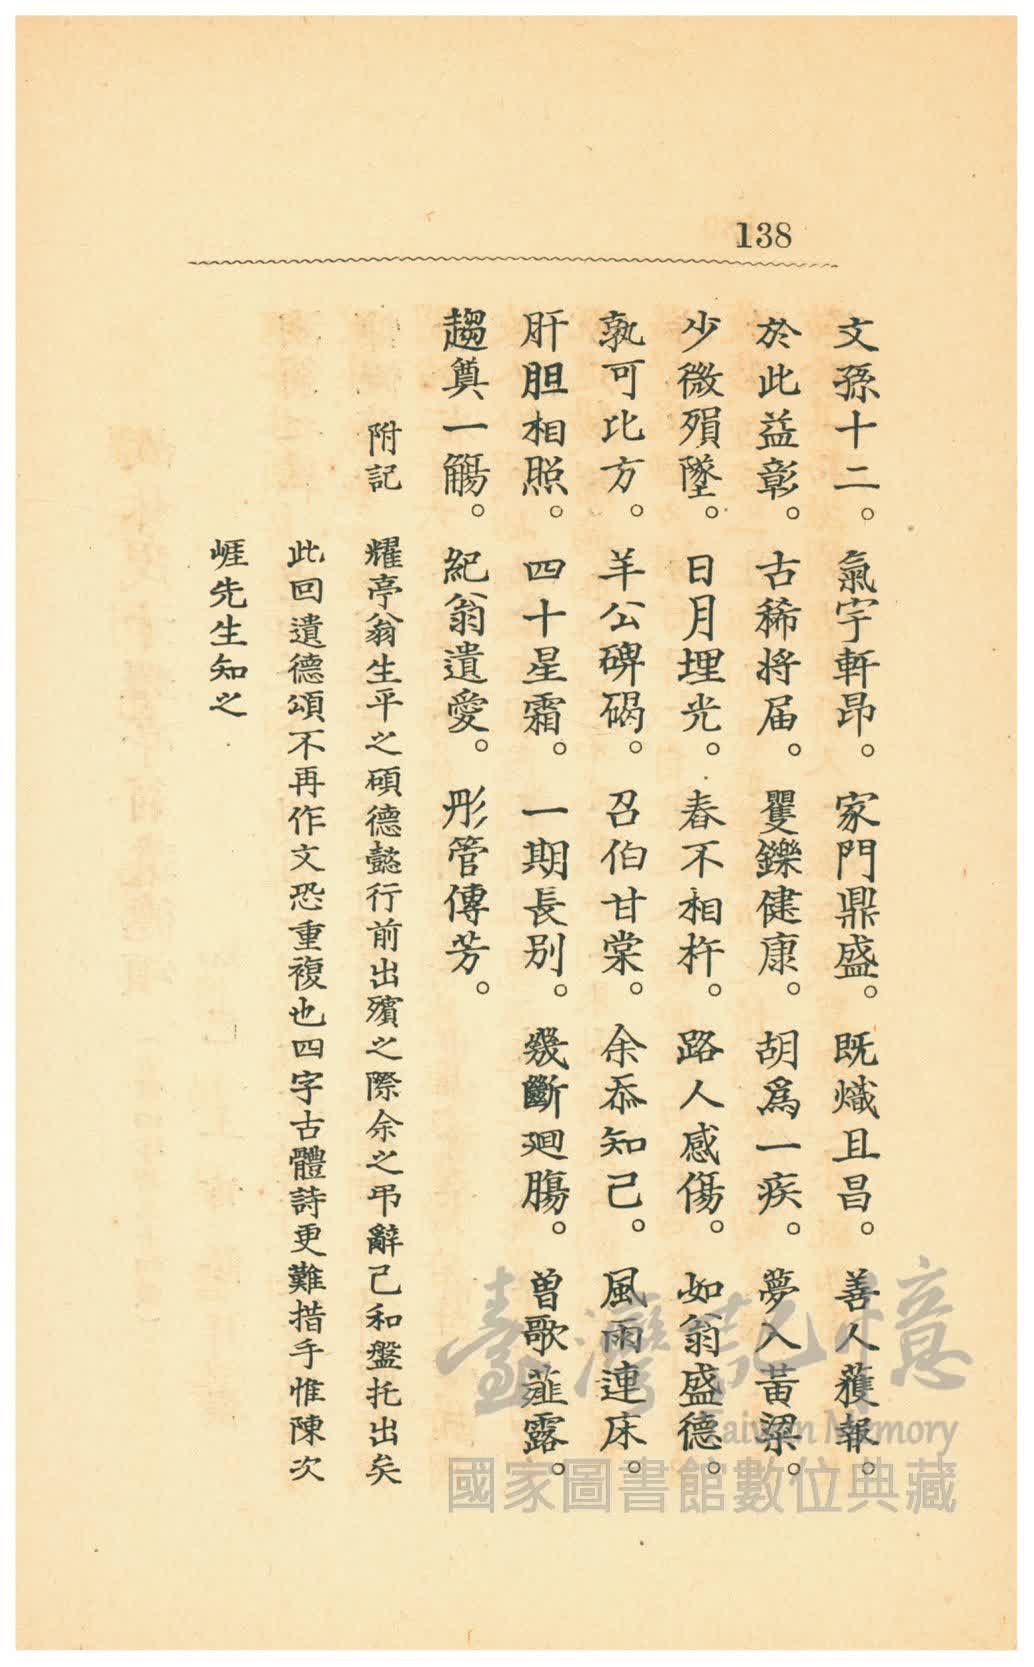 138
文孫十二。氣宇軒昂。家門鼎盛。既熾且昌。善人蒦報。
於此益彰。古稀將届。矍鑠健康。胡爲一疾。夢入黃粱。
少微殞墜。日月埋光。舂不相杵。路人感傷。如翁盛德。
孰可比方。羊公碑碣。召伯甘棠。余忝知己。風雨連床。
肝胆相照。四十星霜。一期長別。幾斷廻腸。曾歌薤露。
趨奠一觴。紀翁遺愛。彤管傳芳。
附記
耀亭翁生平之碩德懿行前出殯之際余之弔辭己和盤托出矣
此回遺德頌不再作文恐重複也四字古體詩更難措手惟陳次
崕先生知之
臺灣記憶
Taiwan Memory
國家圖書館數位典藏